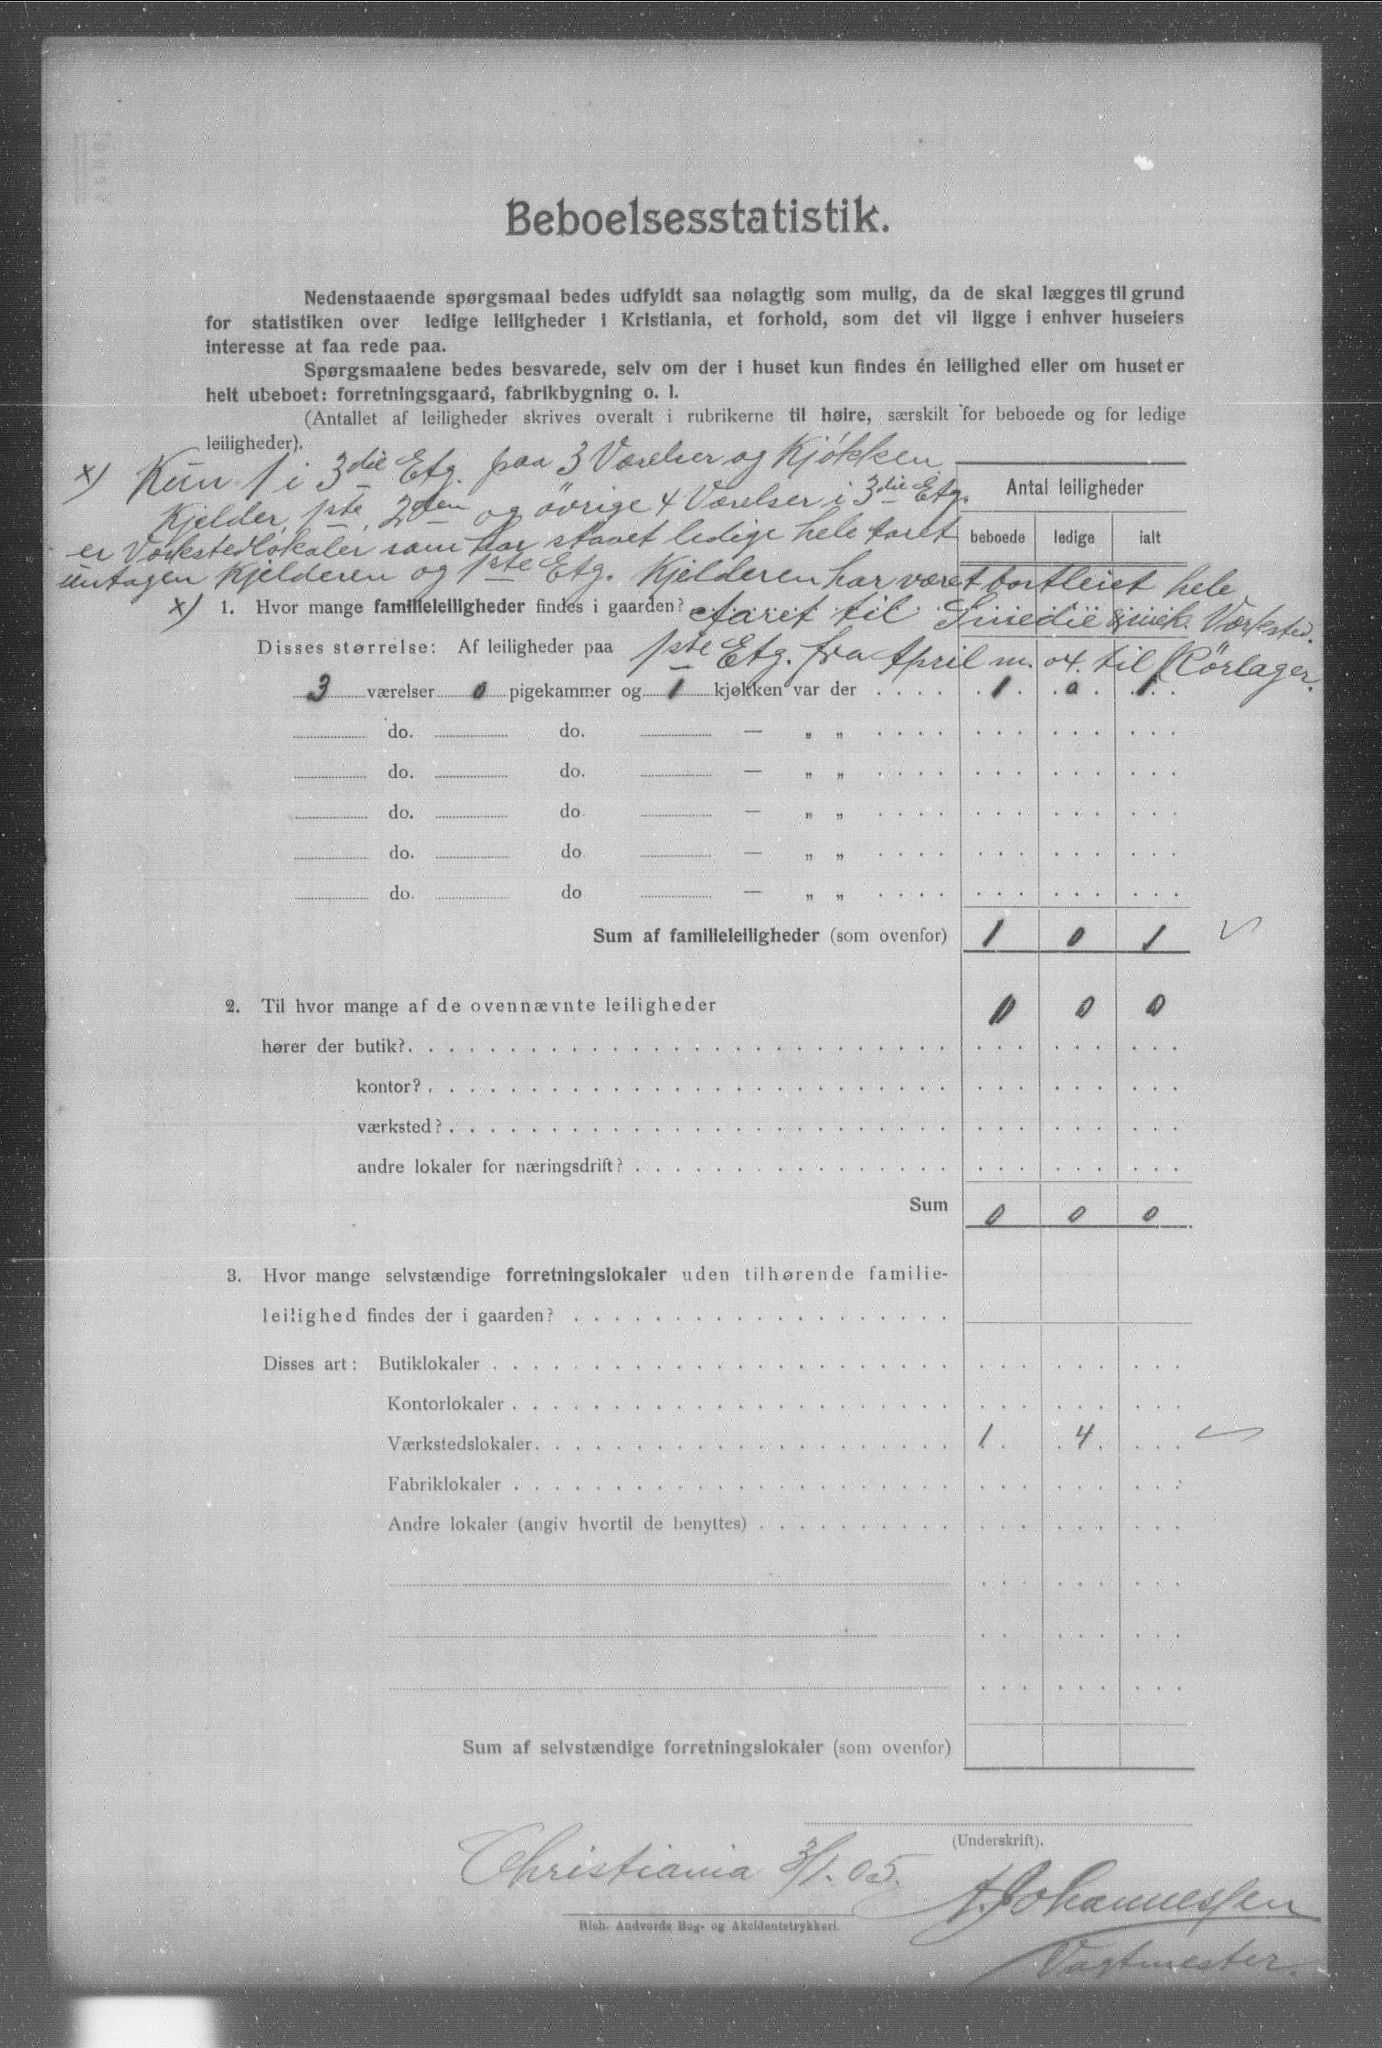 Beboelsesstatistik.
Nedenstaaende spørgsmaal bedes udfyldt saa nøiagtig som mulig, da de skal lægges til grund
for statistiken over ledige leiligheder i Kristiania, et forhold, som det vil ligge i enhver huseiers
interesse at faa rede paa.
Spørgsmaalene bedes besvarede, selv om der i huset kun findes én leilighed eller om huset er
helt ubeboet: forretningsgaard, fabrikbygning o. l.
(Antallet af leiligheder skrives overalt i rubrikerne til høire, særskilt for beboede og for ledige
leiligheder).
x) Kun 1 i 3die Etg. paa 3 Værelser og Kjøkken
Kjelder, 1ste, 2den og øvrige 4 Værelser i 3die Etg.
er Værkstedlokaler som har staaet ledige hele aaret
untagen Kjelderen og 1ste Etg. Kjelderen har været bortleiet hele
Antal leiligheder
beboede ledige ialt
x) 1. Hvor mange familieleiligheder findes i gaarden? Aaret til Smedie & mek. Værksted.
Disses størrelse: Af leiligheder paa 1ste Etg. fra April m. 04. til Rørlager.
3 værelser 0 pigekammer og 1 kjøkken var der 1 0 1
do. do. — „ „
do. do. — „ „
do. do — „ „
do. do — „ „
do. do — „ „
Sum af familieleiligheder (som ovenfor) 1 0 1
2. Til hvor mange af de ovennævnte leiligheder 0 0 0
hører der butik?
kontor?
værksted?
andre lokaler for næringsdrift?
Sum 0 0 0
3. Hvor mange selvstændige forretningslokaler uden tilhørende familie-
leilighed findes der i gaarden?
Disses art: Butiklokaler
Kontorlokaler
Værkstedslokaler 1 4
Fabriklokaler
Andre lokaler (angiv hvortil de benyttes)
Sum af selvstændige forretningslokaler (som ovenfor)
(Underskrift).
Christiania 3/1. 05.
A. Johannessen
Vagtmester.
Rich. Andvords Bog- og Akcidentstrykkeri.